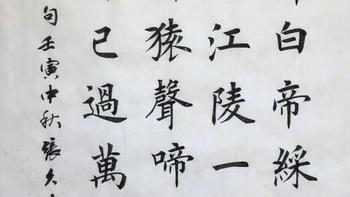 白帝綵
江陵一
猿聲啼
已過萬
句壬寅中秋張久